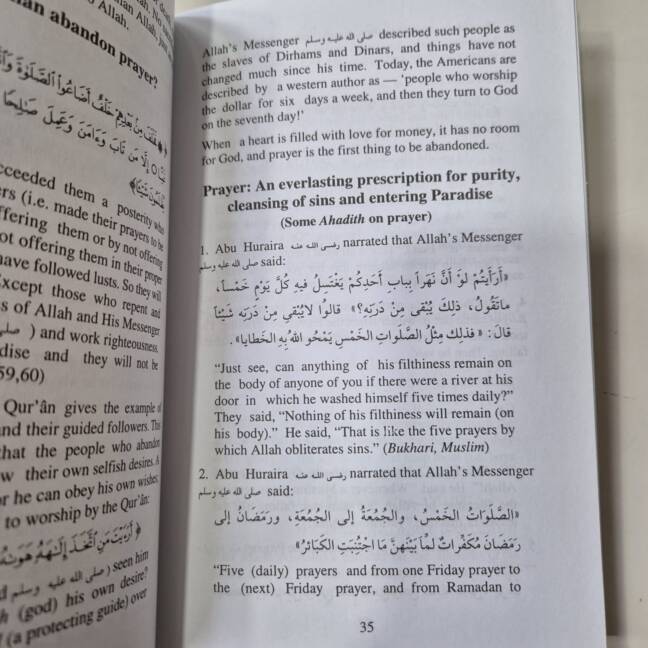 an abandon prayer?
﴿فَخَلَفَ مِنْ بَعْدِهِمْ خَلْفٌ أَضَاعُوا الصَّلَوٰةَ
إِلَّا مَن تَابَ وَءَامَنَ وَعَمِلَ صَـٰلِحًا
cceeded them a posterity who
ers (i.e. made their prayers to be
ffering them or by not offering
ot offering them in their proper
have followed lusts. So they will
Except those who repent and
s of Allah and His Messenger
) and work righteousness.
dise and they will not be
59,60)
Qur'ân gives the example of
nd their guided followers. This
that the people who abandon
w their own selfish desires. A
or he can obey his own wishes.
to worship by the Qur'ân:
﴿ أَرَءَيْتَ مَنِ ٱتَّخَذَ إِلَـٰهَهُۥ هَوَىٰهُ
صلى الله عليه وسلم) seen him
h (god) his own desire?
(a protecting guide) over
Allah's Messenger صلى الله عليه وسلم described such people as
the slaves of Dirhams and Dinars, and things have not
changed much since his time. Today, the Americans are
described by a western author as — 'people who worship
the dollar for six days a week, and then they turn to God
on the seventh day!'
When a heart is filled with love for money, it has no room
for God, and prayer is the first thing to be abandoned.
Prayer: An everlasting prescription for purity,
cleansing of sins and entering Paradise
(Some Ahadith on prayer)
1. Abu Huraira رضى الله عنه narrated that Allah's Messenger
صلى الله عليه وسلم said:
«أَرَأَيْتُمْ لَوْ أَنَّ نَهَرًا بِبابِ أَحَدِكُمْ يَغْتَسِلُ فيهِ كُلَّ يَوْمٍ خَمْساً،
ماتَقُولُ، ذلِكَ يُبْقي مِنْ دَرَنِهِ؟» قالُوا لايُبْقي مِنْ دَرَنِهِ شَيْئاً
قالَ: «فَذلِكَ مِثْلُ الصَّلَواتِ الخَمْسِ يَمْحُو اللهُ بِهِ الخَطايا».
"Just see, can anything of his filthiness remain on
the body of anyone of you if there were a river at his
door in which he washed himself five times daily?"
They said, "Nothing of his filthiness will remain (on
his body)." He said, "That is like the five prayers by
which Allah obliterates sins." (Bukhari, Muslim)
2. Abu Huraira رضى الله عنه narrated that Allah's Messenger
صلى الله عليه وسلم said:
«الصَّلَوَاتُ الخَمْسُ، والجُمُعَةُ إلى الجُمُعَةِ، ورَمَضَانُ إلى
رَمَضَانَ مُكَفِّرَاتٌ لِمَا بَيْنَهُنَّ مَا اجْتُنِبَتِ الكَبَائرُ»
"Five (daily) prayers and from one Friday prayer to
the (next) Friday prayer, and from Ramadan to
35